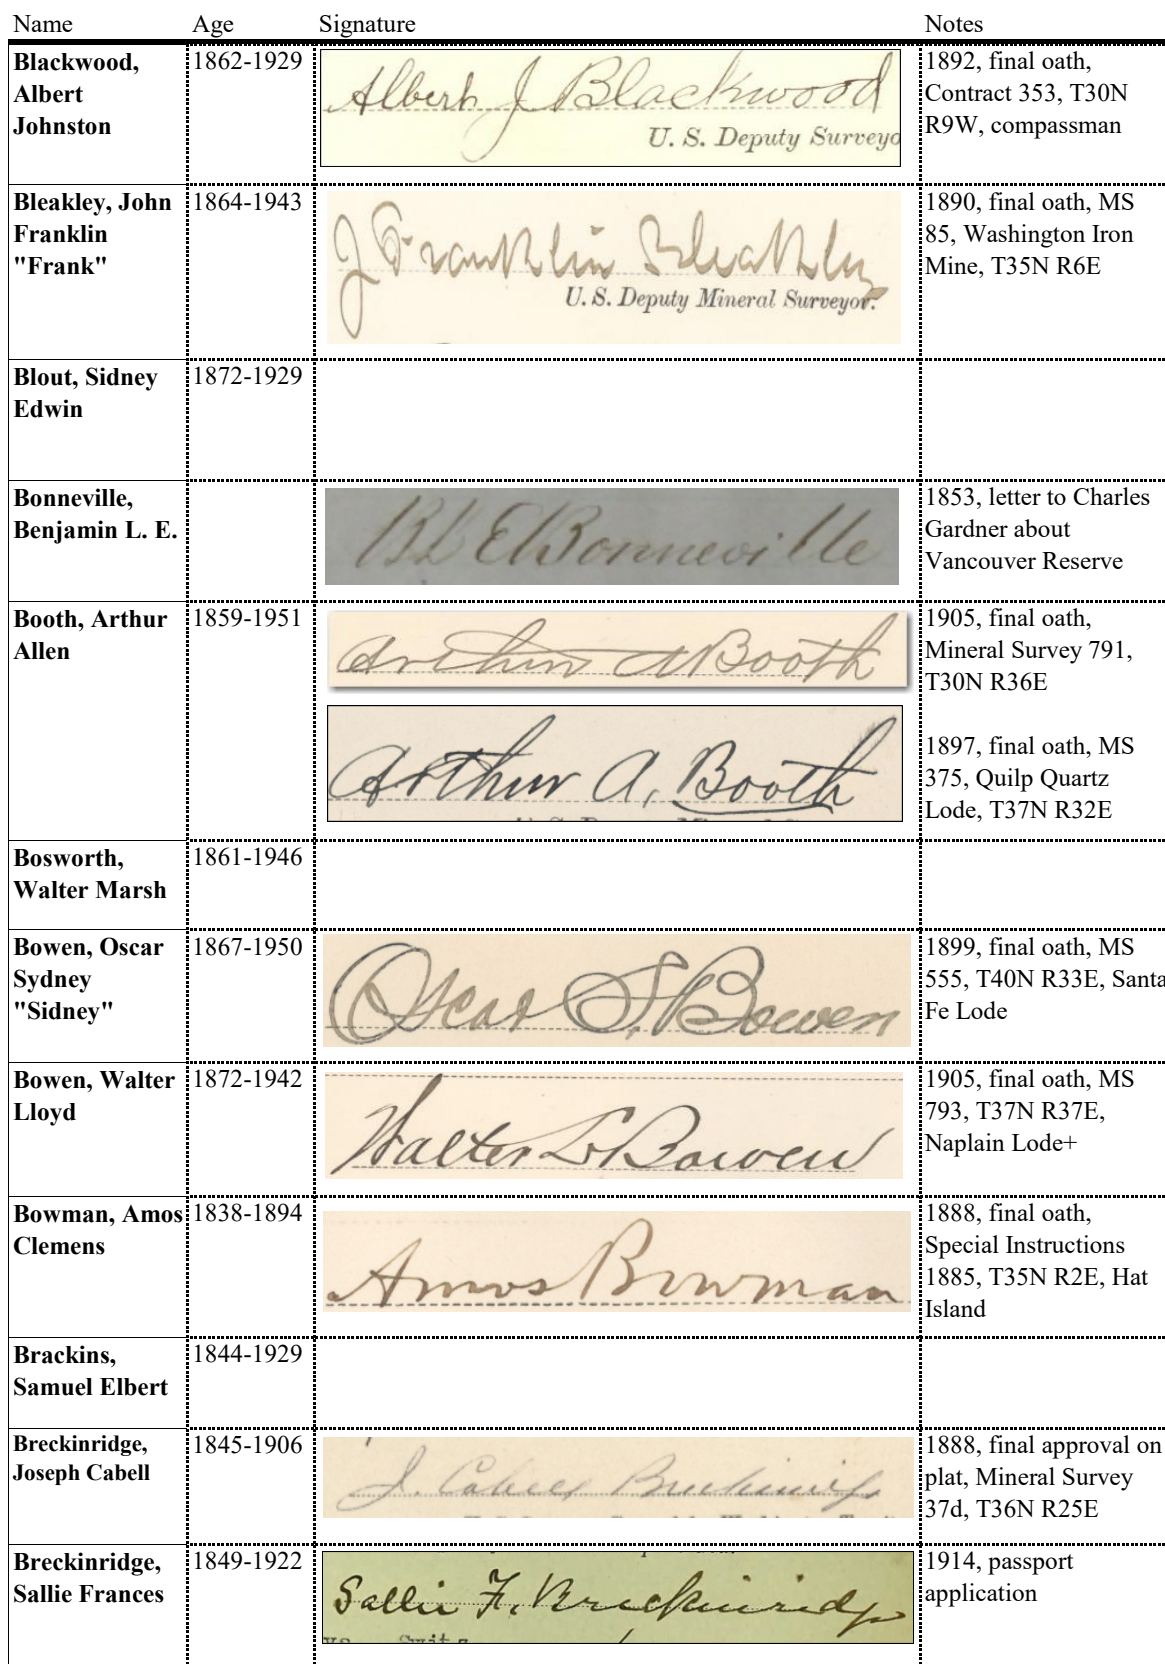 Name Age Signature Notes
Blackwood, Albert Johnston 1862-1929 Albert J Blackwood 1892, final oath,
U. S. Deputy Surveyo Contract 353, T30N
R9W, compassman
Bleakley, John Franklin "Frank" 1864-1943 J Franklin Bleakley 1890, final oath, MS
U. S. Deputy Mineral Surveyor. 85, Washington Iron
Mine, T35N R6E
Blout, Sidney Edwin 1872-1929
Bonneville, Benjamin L. E. BLE Bonneville 1853, letter to Charles
Gardner about
Vancouver Reserve
Booth, Arthur Allen 1859-1951 Arthur A Booth 1905, final oath,
Mineral Survey 791,
T30N R36E
Arthur A. Booth 1897, final oath, MS
375, Quilp Quartz
Lode, T37N R32E
Bosworth, Walter Marsh 1861-1946
Bowen, Oscar Sydney "Sidney" 1867-1950 Oscar S. Bowen 1899, final oath, MS
555, T40N R33E, Santa
Fe Lode
Bowen, Walter Lloyd 1872-1942 Walter L Bowen 1905, final oath, MS
793, T37N R37E,
Naplain Lode+
Bowman, Amos Clemens 1838-1894 Amos Bowman 1888, final oath,
Special Instructions
1885, T35N R2E, Hat
Island
Brackins, Samuel Elbert 1844-1929
Breckinridge, Joseph Cabell 1845-1906 J. Cabell Breckinridge 1888, final approval on
plat, Mineral Survey
37d, T36N R25E
Breckinridge, Sallie Frances 1849-1922 Sallie F. Breckinridge 1914, passport
application